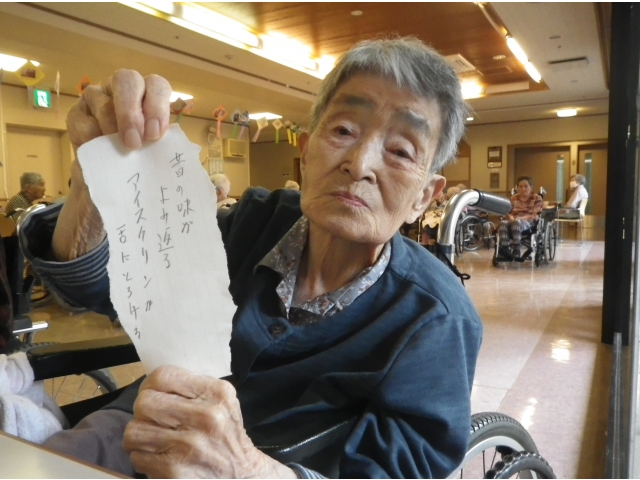 昔の味が
よみ返る
アイスクリンが
舌にとろける